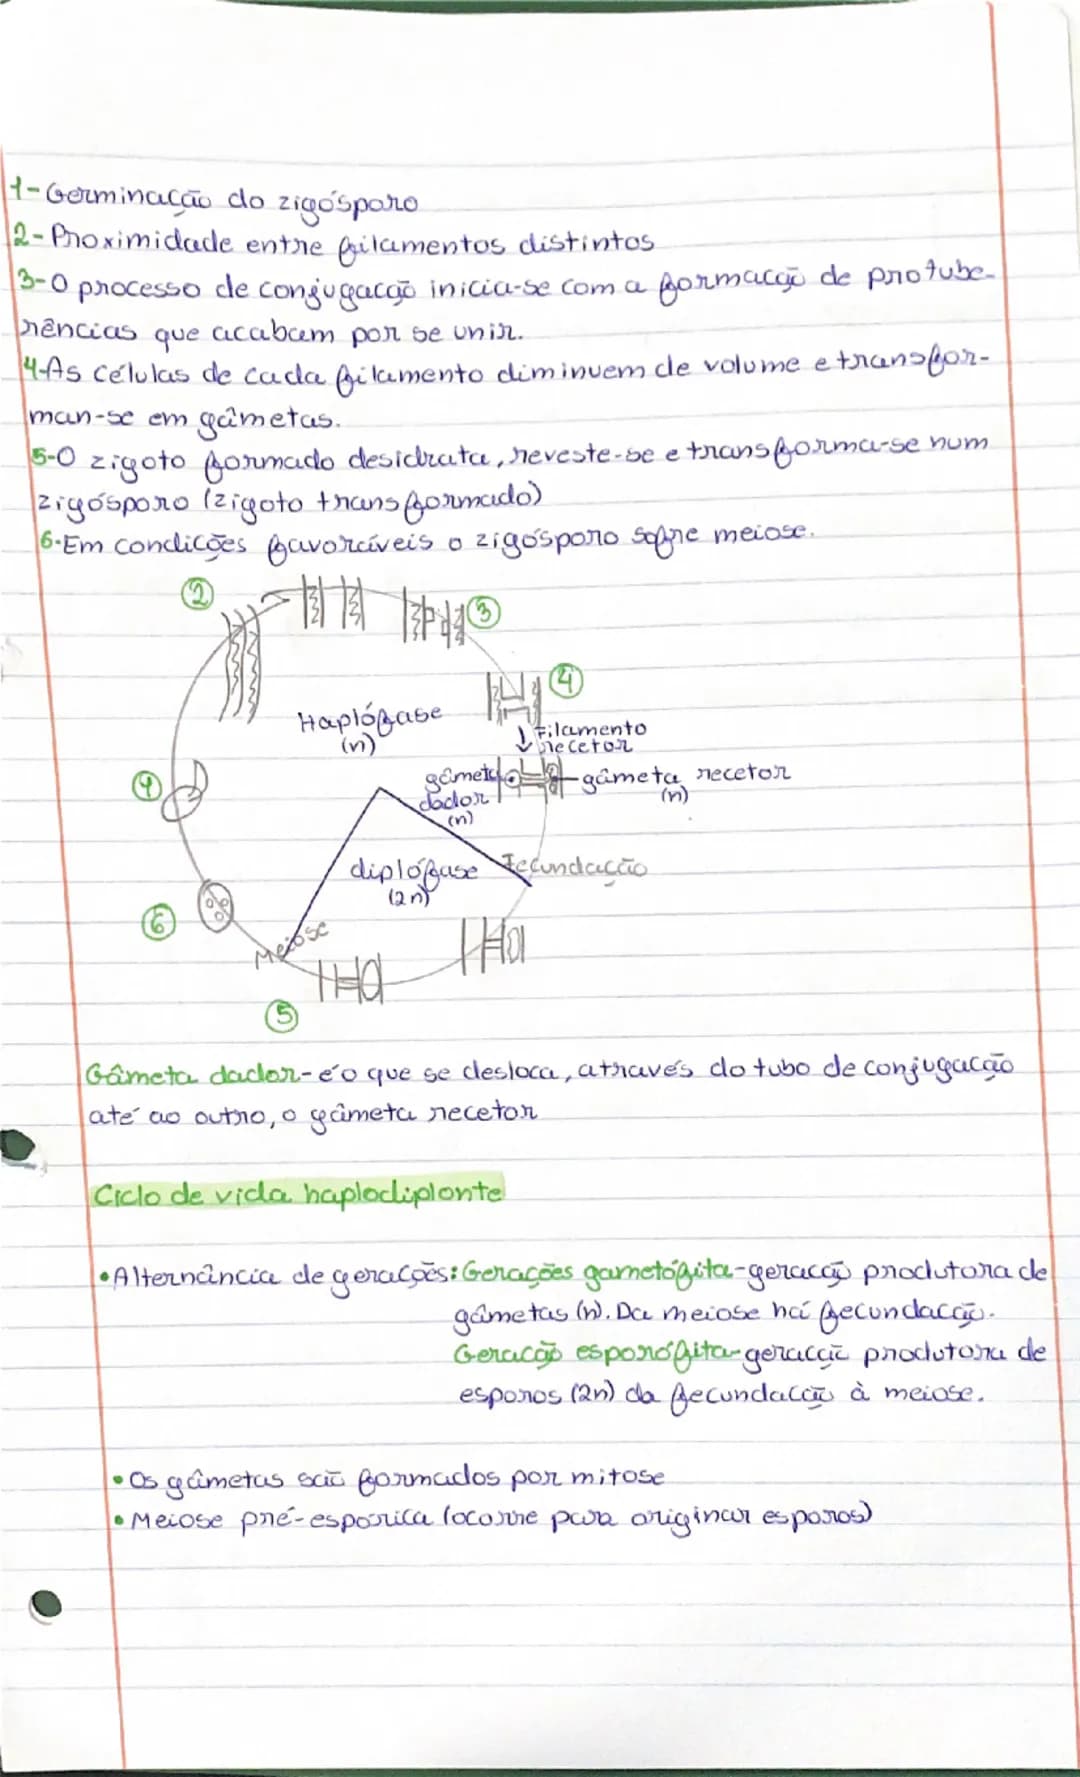 1-Germinação do zigósporo
2-Proximidade entre filamentos distintos
3-O processo de conjugação inicia-se com a formação de protube-
rências que acabam por se unir.
4-As células de cada filamento diminuem de volume e transfor-
man-se em gâmetas.
5-O zigoto formado desidrata, reveste-se e transforma-se num
zigósporo (zigoto transformado)
6-Em condições favoráveis o zigósporo sofre meiose.
2
3
4
Haplófase
(n)
Filamento
recetor
gâmeta
dador
(n)
gâmeta recetor
(n)
diplófase
(2n)
Fecundação
6
Meiose
5
Gâmeta dador-é o que se desloca, através do tubo de conjugação
até ao outro, o gâmeta recetor
Ciclo de vida haplodiplonte
•Alternância de gerações: Gerações gametófita-geração produtora de
gâmetas (n). Da meiose há fecundação.
Geração esporófita-geração produtora de
esporos (2n) da fecundação à meiose.
•Os gâmetas são formados por mitose
•Meiose pré-espórica (ocorre para originar esporos)